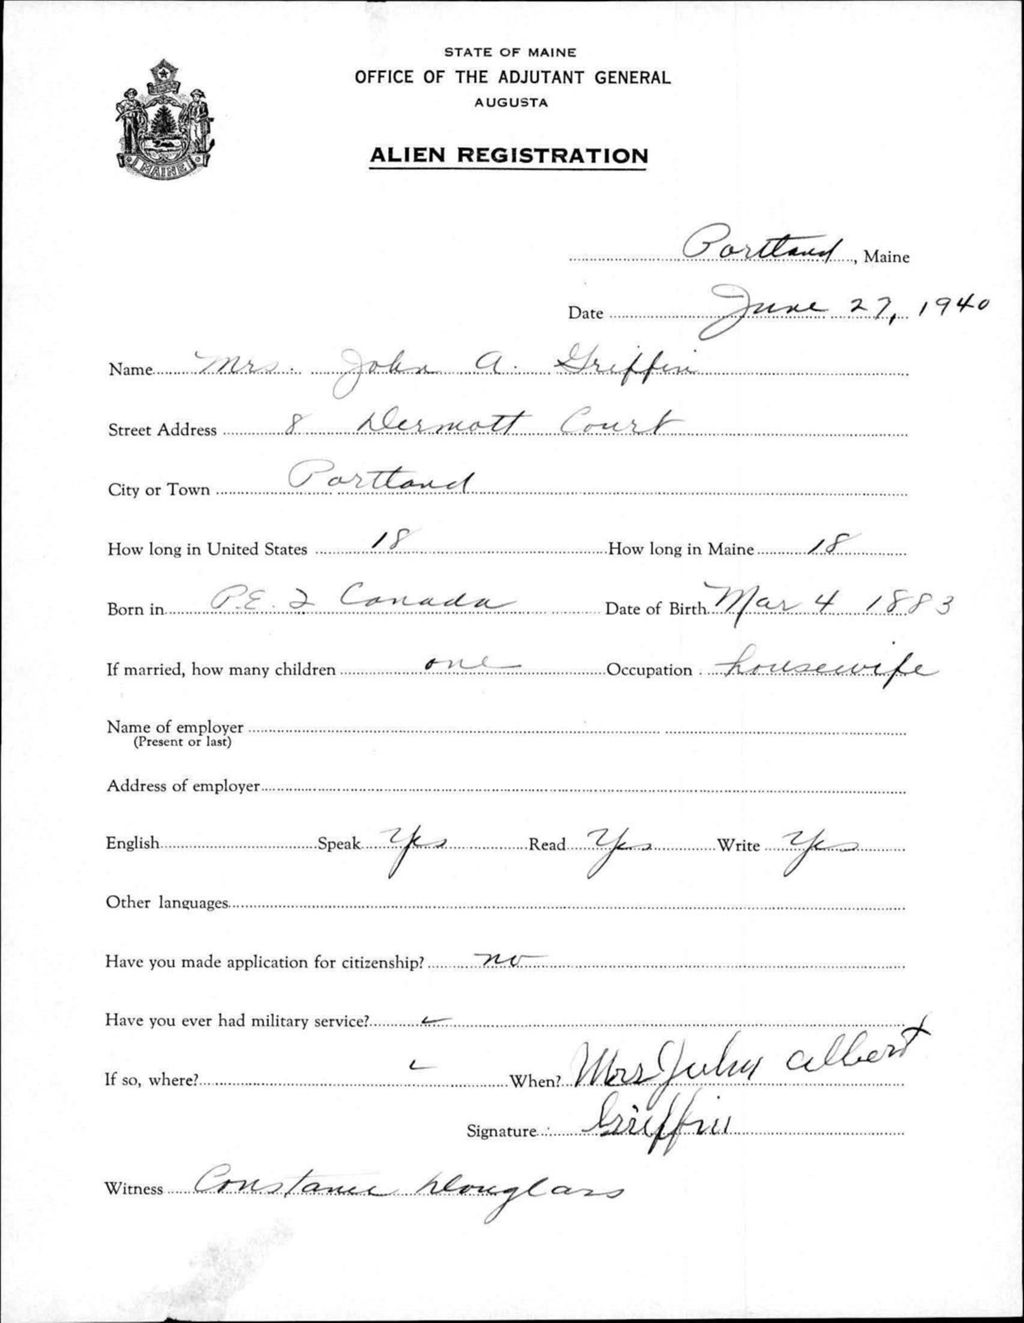 STATE OF MAINE
OFFICE OF THE ADJUTANT GENERAL
AUGUSTA
ALIEN REGISTRATION
MAINE
Portland, Maine
Date June 27, 1940
Name Mrs. John A. Griffin
Street Address 8 Dermott Court
City or Town Portland
How long in United States 18 How long in Maine 18
Born in P.E.I Canada Date of Birth Mar 4 1883
If married, how many children one Occupation housewife
Name of employer
(Present or last)
Address of employer
English Speak Yes Read Yes Write Yes
Other languages
Have you made application for citizenship? no
Have you ever had military service? -
If so, where? - When?
Mrs John Albert
Signature Griffin
Witness Constance Douglass